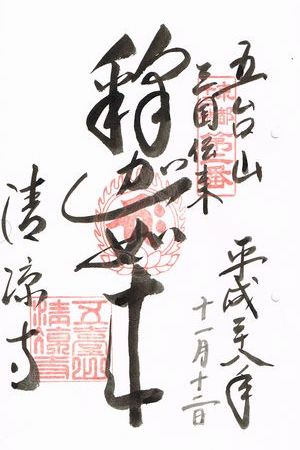 五台山
三国伝来
平成二十八年
十一月十二日
釋迦如来
清凉寺
五臺山
清凉寺